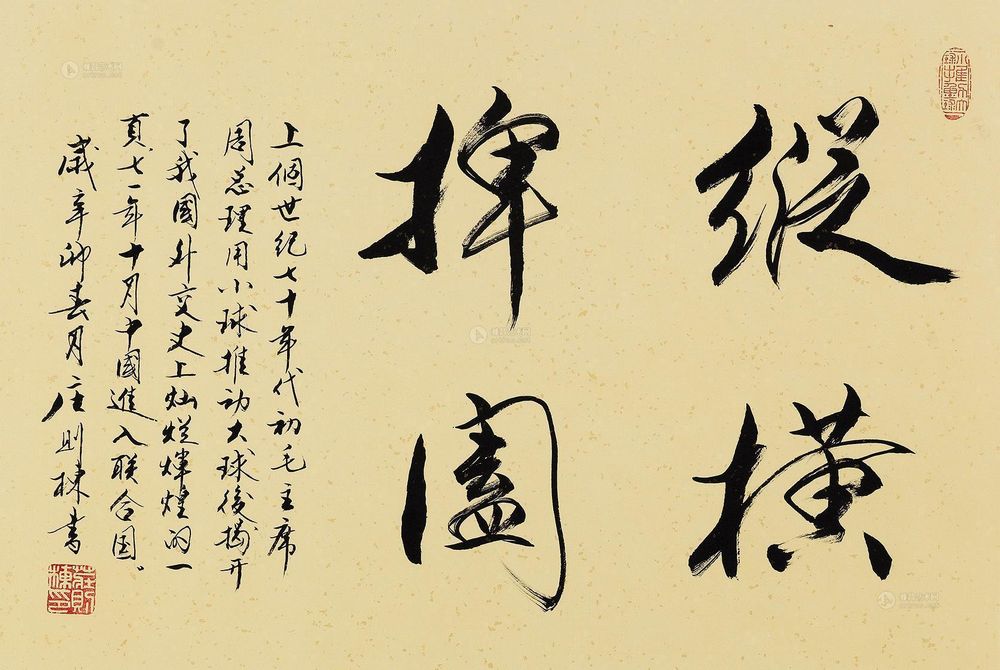 縱橫
捭闔
上個世紀七十年代初毛主席
周总理用小球推动大球後揭开
了我國外交史上灿烂煇煌的一
頁.七一年十月中國進入联合国。
歲辛卯春月庄则棟书
莊則棟印